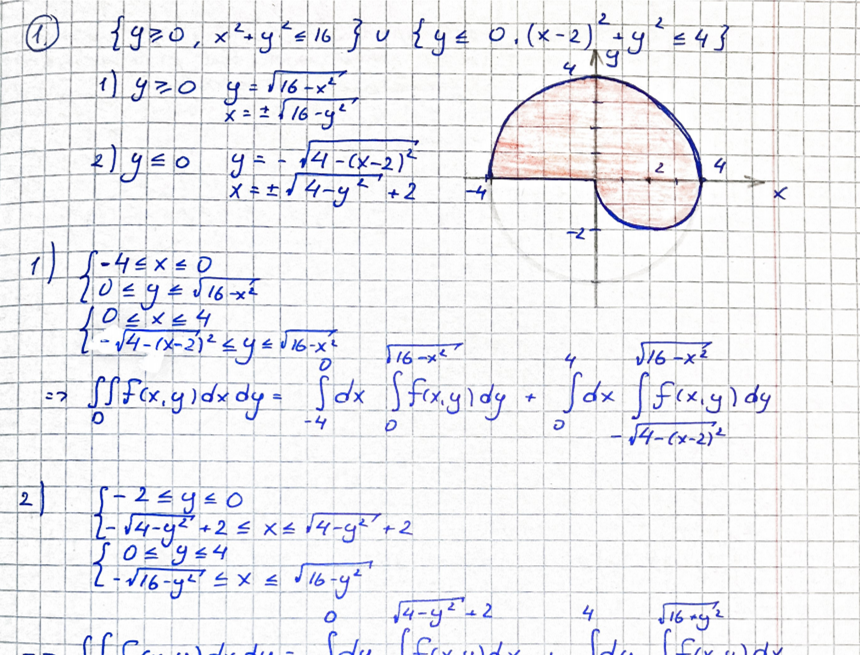 1. {y ≥ 0, x² + y² ≤ 16} ∪ {y ≤ 0, (x-2)² + y² ≤ 4}
1) y ≥ 0 y = √(16-x²)
x = ± √(16-y²)
2) y ≤ 0 y = - √(4-(x-2)²)
x = ± √(4-y²) + 2
4 y
-4 2 4 x
-2
1) { -4 ≤ x ≤ 0
{ 0 ≤ y ≤ √(16-x²)
{ 0 ≤ x ≤ 4
{ -√(4-(x-2)²) ≤ y ≤ √(16-x²)
=> ∫∫_D f(x,y)dxdy = ∫_{-4}^{0} dx ∫_{0}^{√(16-x²)} f(x,y)dy + ∫_{0}^{4} dx ∫_{-√(4-(x-2)²)}^{√(16-x²)} f(x,y)dy
2) { -2 ≤ y ≤ 0
{ -√(4-y²) + 2 ≤ x ≤ √(4-y²) + 2
{ 0 ≤ y ≤ 4
{ -√(16-y²) ≤ x ≤ √(16-y²)
0 √(4-y²) + 2 4